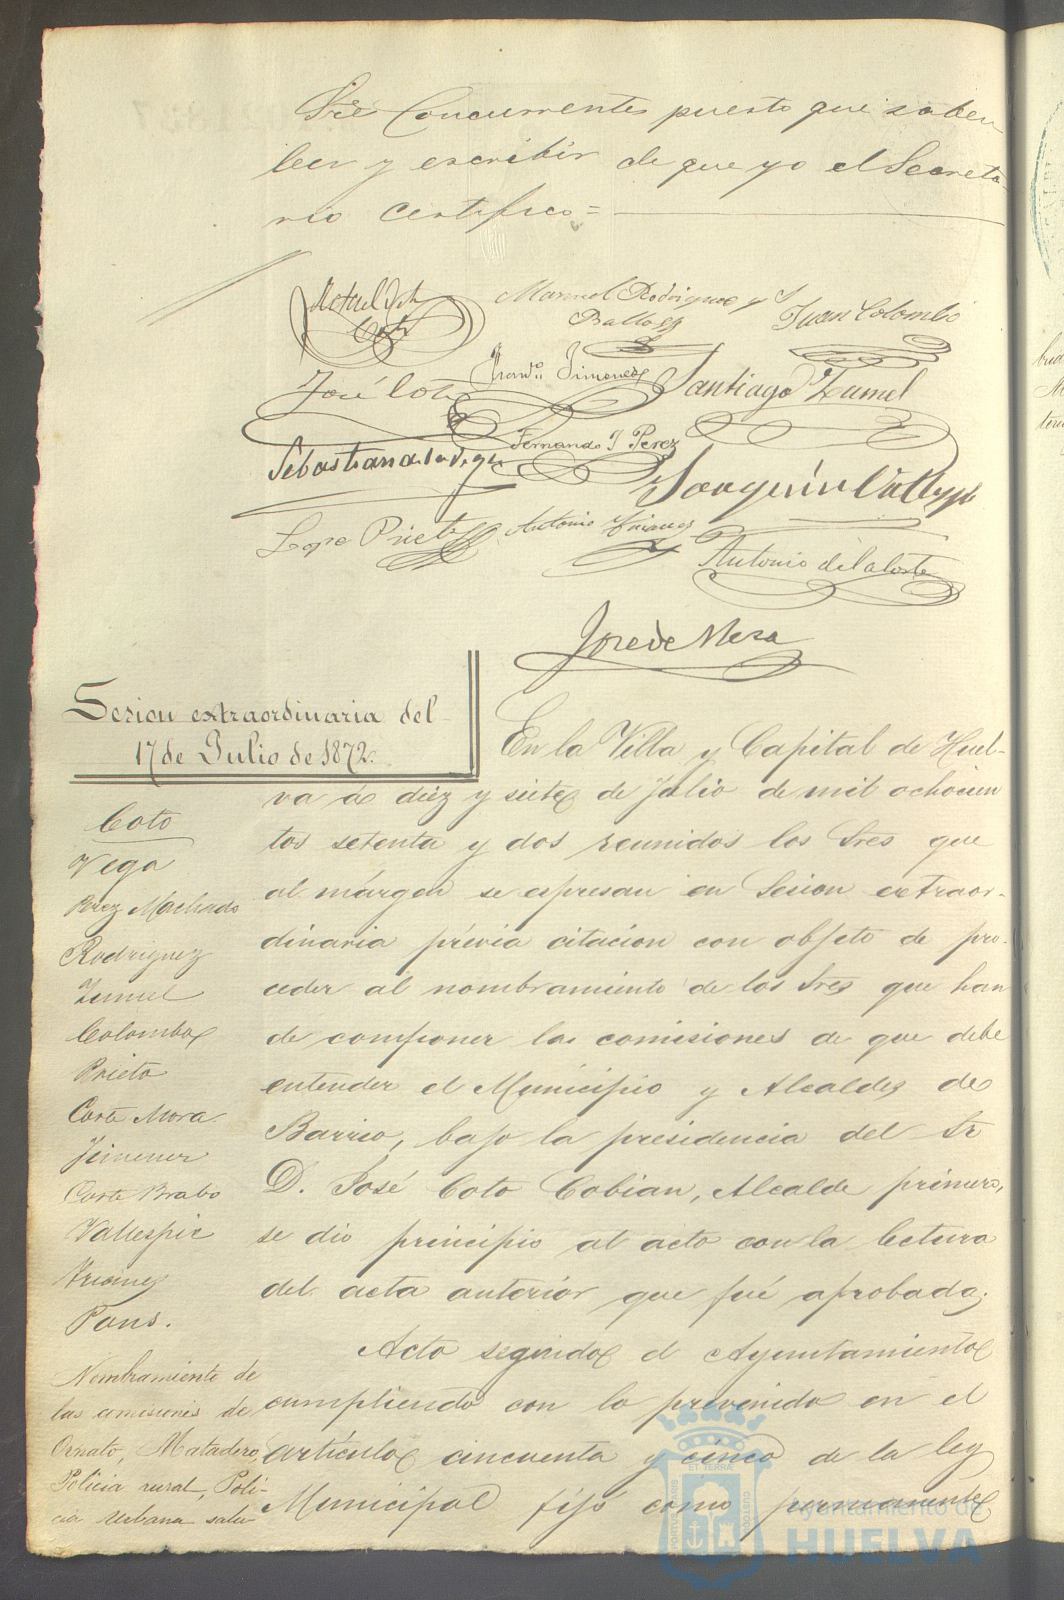 Sres Concurrentes puesto que saben
leer y escribir de que yo el Secreta-
rio certifico =
Manuel Rodriguez y
Juan Colombo
José Coto
Franco Jimenez
Santiago Zumel
Sebastian de la Vega
Fernando J Perez
Joaquín Vallespin
Lope Prieto
Antonio
Antonio de la Corte
José de Mesa
Sesion extraordinaria del
17 de Julio de 1872.
Coto
Vega
Perez Machado
Rodriguez
Zumel
Colombo
Prieto
Corte Mora
Jimenez
Corte Brabo
Vallespin
Pons.
Nombramiento de
las comisiones de
Ornato, Matadero,
Policia rural, Poli-
cia Urbana salu-
En la Villa y Capital de Huel-
va á diez y siete de Julio de mil ochocien
tos setenta y dos reunidos los Sres que
al márgen se espresan en Sesion extraor-
dinaria prévia citacion con objeto de pro-
ceder al nombramiento de los Sres que han
de componer las comisiones de que debe
entender el Municipio y Alcaldes de
Barrio, bajo la presidencia del Sr
D. José Coto Cobian, Alcalde primero,
se dio principio al acto con la lectura
del acta anteriór que fué aprobada;
Acto seguido el Ayuntamiento
cumpliendo con lo prevenido en el
artículo cincuenta y cinco de la ley
Municipal fijó como permanente
Ayuntamiento de
HUELVA